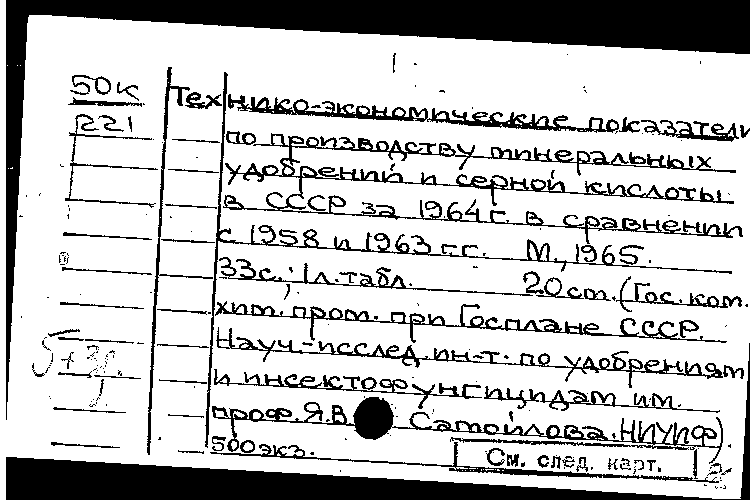 50к
Р221
Технико-экономические показатели
по производству минеральных
удобрений и серной кислоты
в СССР за 1964 г. в сравнении
с 1958 и 1963 г.г. М., 1965.
33с.; 1л.табл. 20 cm. (Гос. ком.
хим. пром. при Госплане СССР.
Науч.-исслед. ин-т. по удобрениям
и инсектофунгицидам им.
проф. Я.В Самойлова. НИУИФ).
500 экз.
См. след. карт.